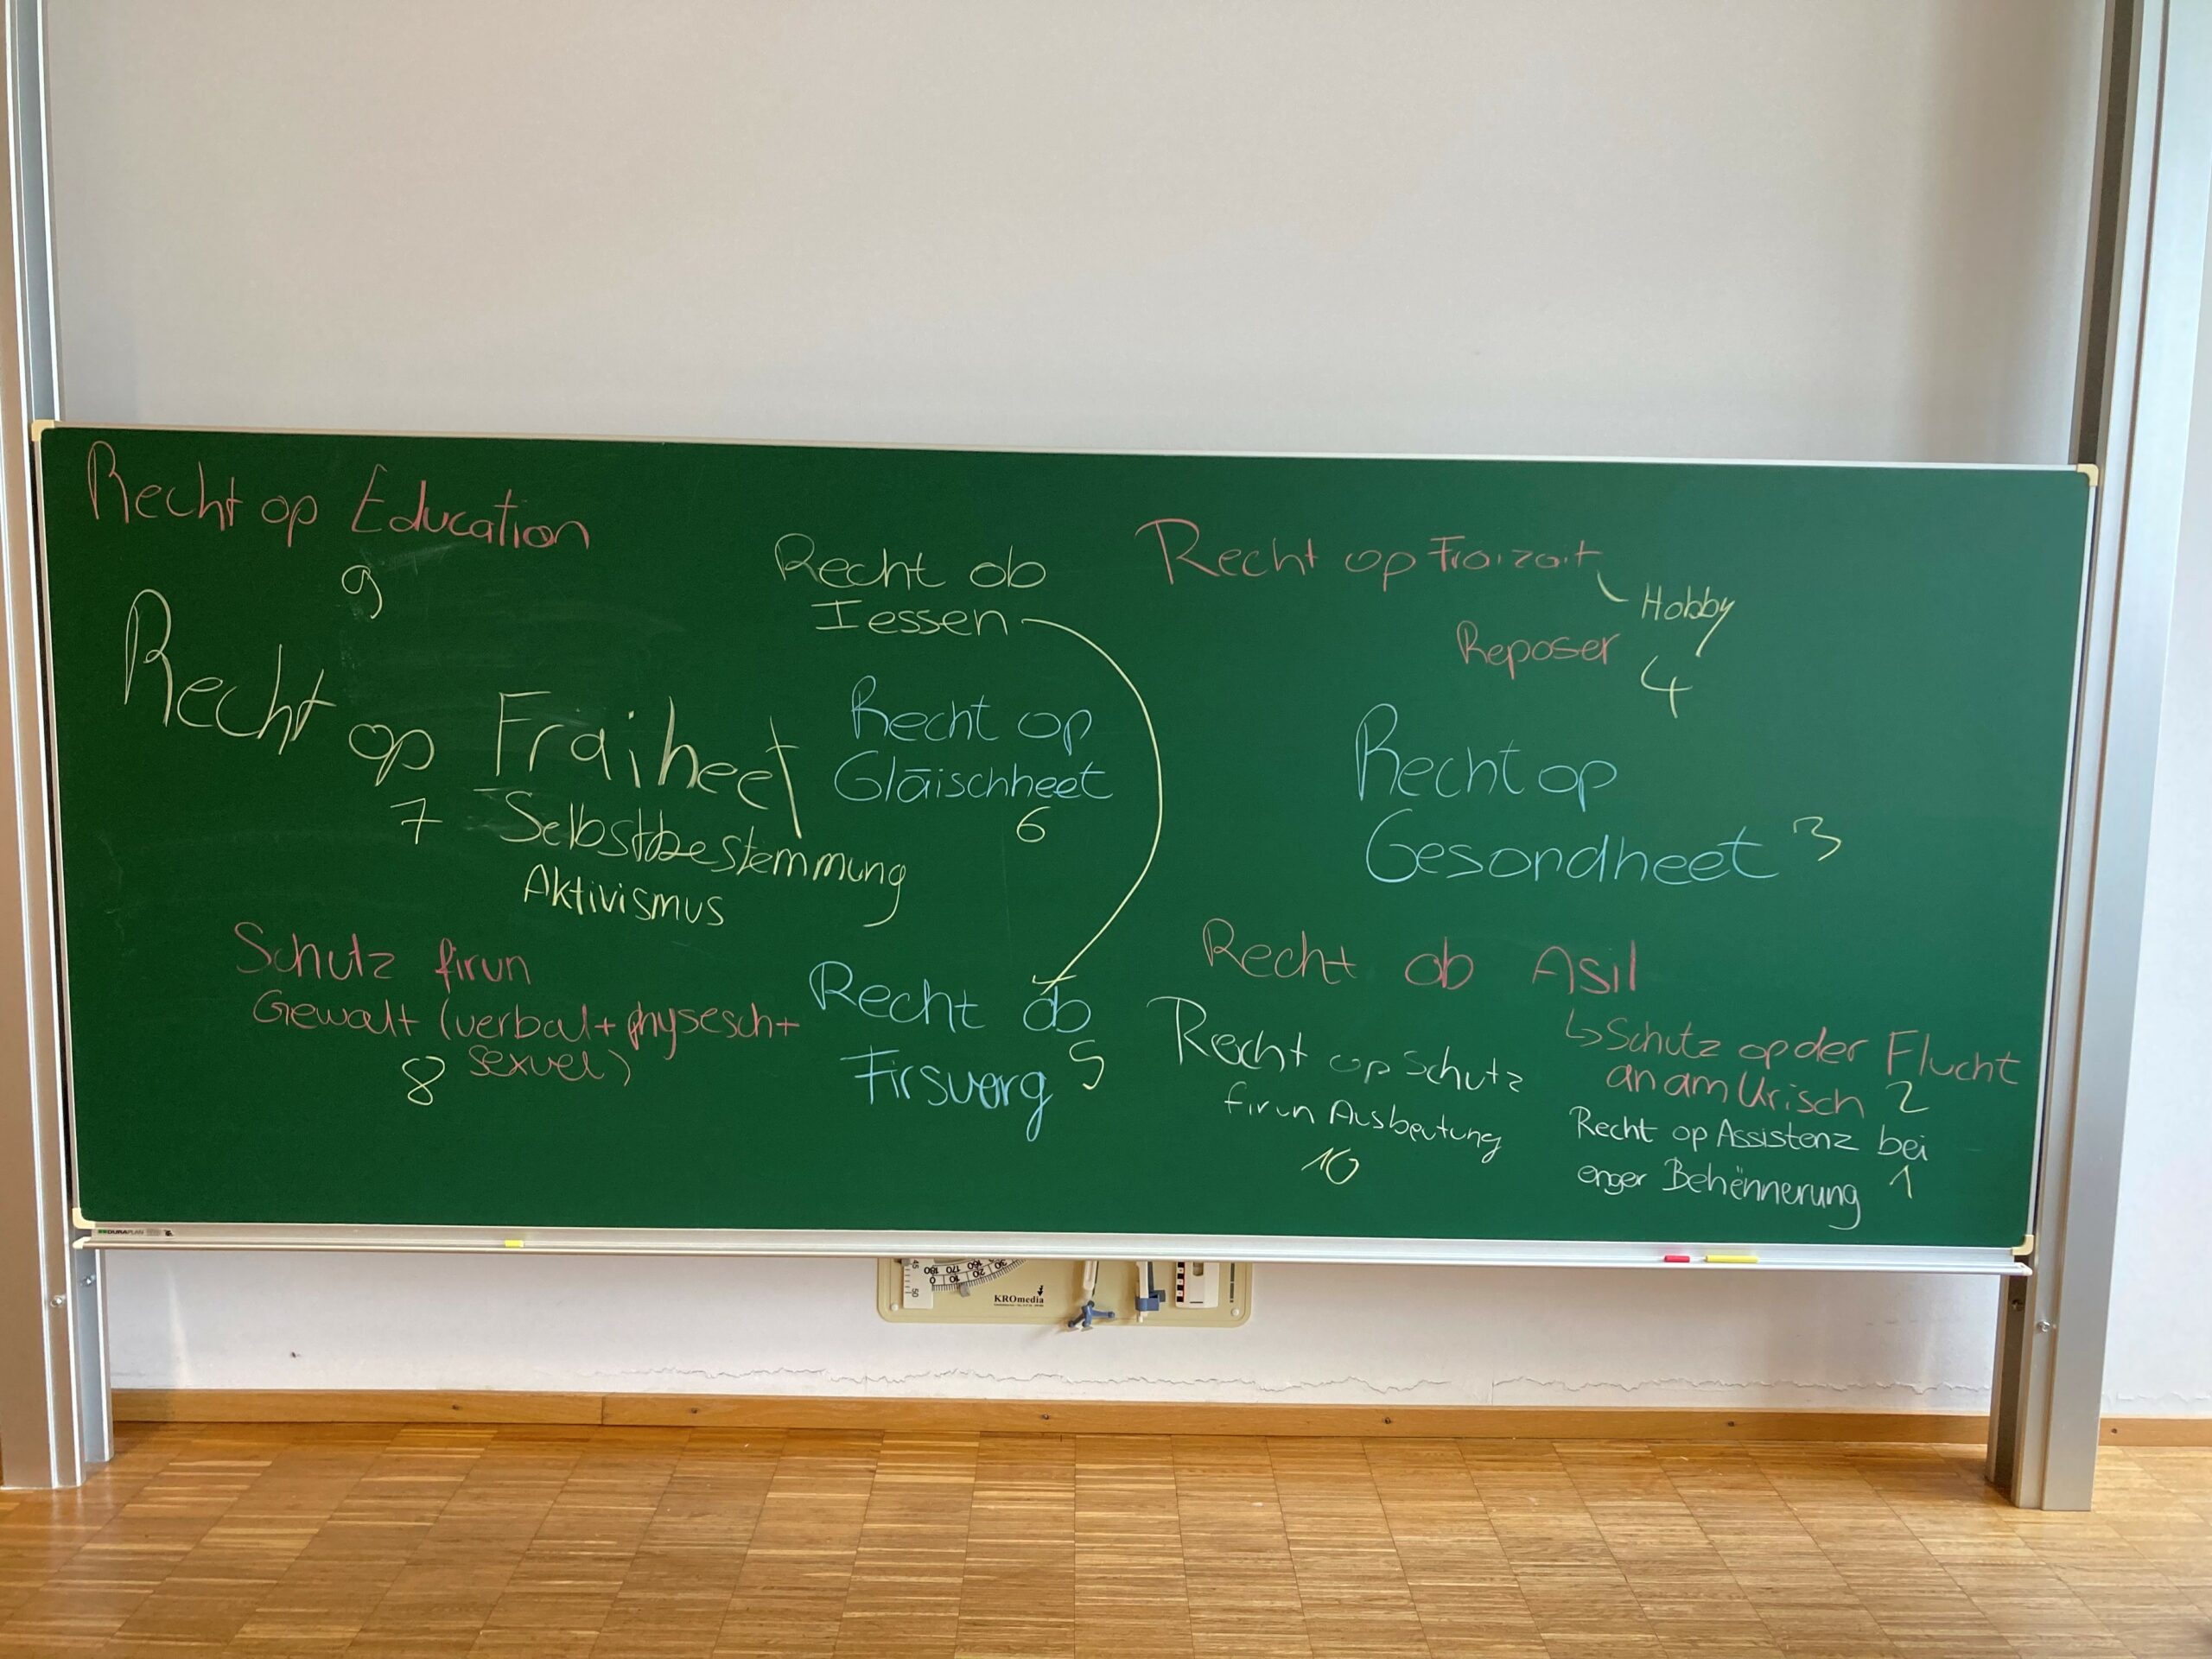 Recht op Education
9
Recht op Fraiheet
7 Selbstbestemmung
Aktivismus
Schutz firun
Gewalt (verbal+physesch+
sexuel)
8
Recht ob
Iessen
Recht op
Gläischheet
6
Recht ob
Firsuerg 5
Recht op Fraizait
Hobby
Reposer
4
Recht op
Gesondheet 3
Recht ob Asil
↳ Schutz op der Flucht
an am Krisch 2
Recht op Schutz
firun Ausbeutung
10
Recht op Assistenz bei
enger Behënnerung 1
DURAPLAN
KROmedia